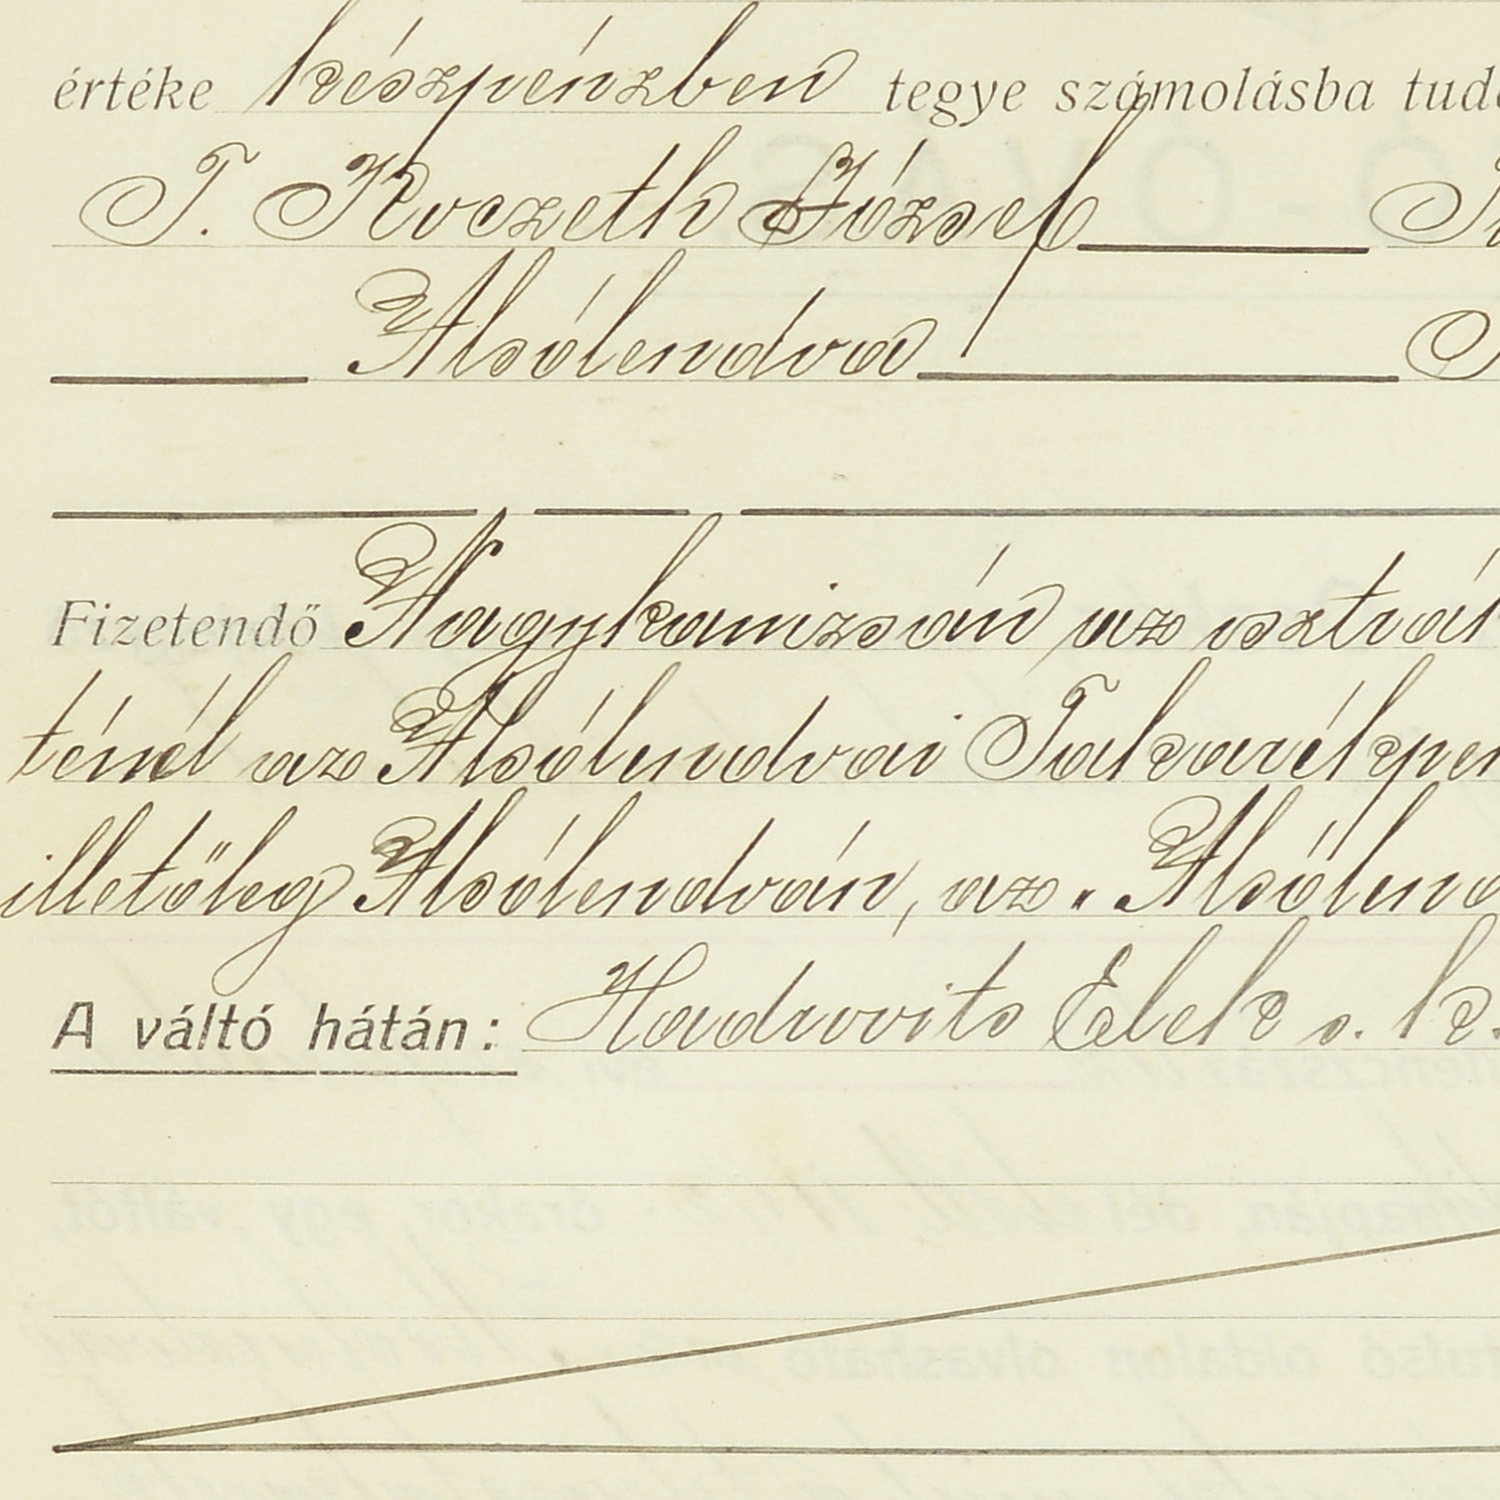 értéke készpénzben tegye számolásba
T. Koczeth József
Alsólendva
Fizetendő Nagykanizsán az osztrák
ténél az Alsólendvai Takarékpén
illetőleg Alsólendván, az "Alsólend
A váltó hátán: Hadrovits Elek s. k.